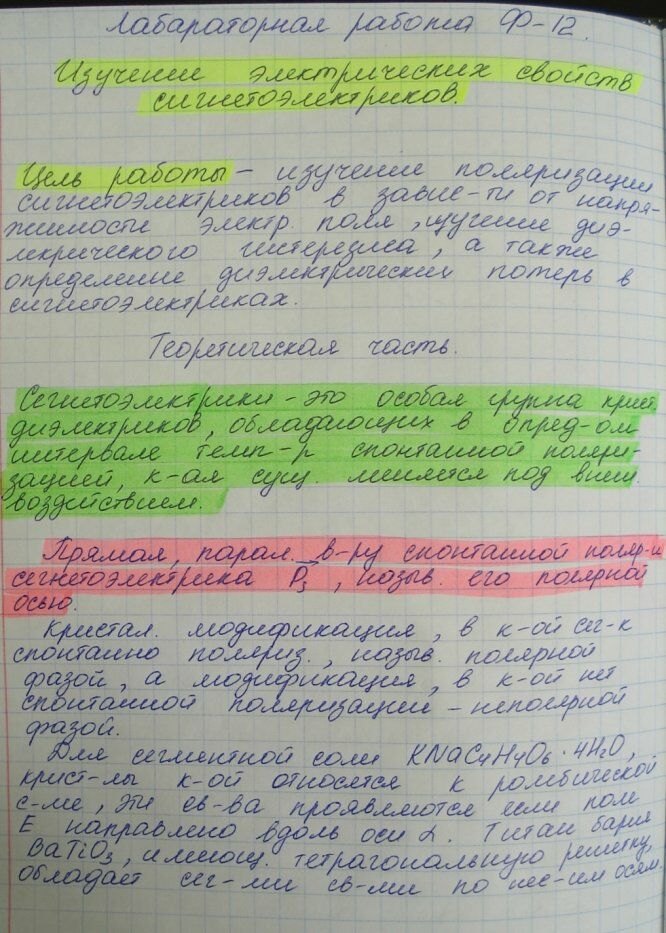 Лабараторная работа Ф-12.
Изучение электрических свойств
сигнетоэлектриков.
Цель работы – изучение поляризации
сигнетоэлектриков в завис-ти от напря-
жимости электр. поля, изучение диэ-
лекрического гистерезиса, а также
определение диэлектрических потерь в
сигнетоэлектриках.
Теоретическая часть.
Сегнетоэлектрики – это особая группа крист.
диэлектриков, обладающих в опред-ом
интервале темп-р спонтанной поляри-
зацией, к-ая сущ. меняется под внеш.
воздействием.
Прямая, парал. в-ру спонтанной поляр-и
сегнетоэлектрика P⃗з, назыв. его полярной
осью.
Кристал. модификация, в к-ой сег-к
спонтанно поляриз., назыв. полярной
фазой, а модификация, в к-ой нет
спонтанной поляризации – неполярной
фазой.
Для сегментной соли KNaC4H4O6 · 4H2O,
крист-лы к-ой относятся к ромбической
с-ме, эти св-ва проявляются если поле
E направлено вдоль оси α. Титан бария
BaTiO3, имеющ. тетрагональную решетку,
обладает сег-ми св-ми по нес-им осям.